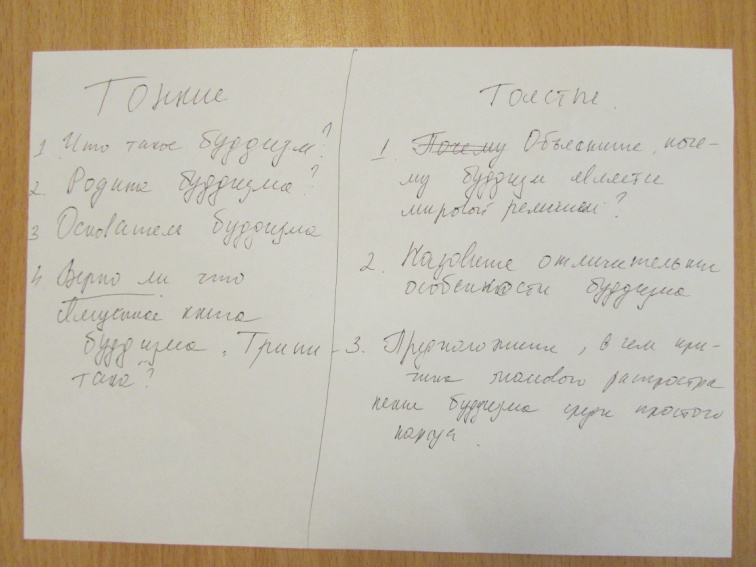 Тонкие
1 Что такое буддизм?
2 Родина буддизма?
3 Основатель буддизма
4 Верно ли что
священная книга
буддизма „Трипи-
така?
Толстые.
1 Почему Объясните, поче-
му буддизм является
мировой религией?
2. Назовите отличительные
особенности буддизма
3. Предположите, в чем при-
чина такового распростра
нения буддизма среди простого
народа.